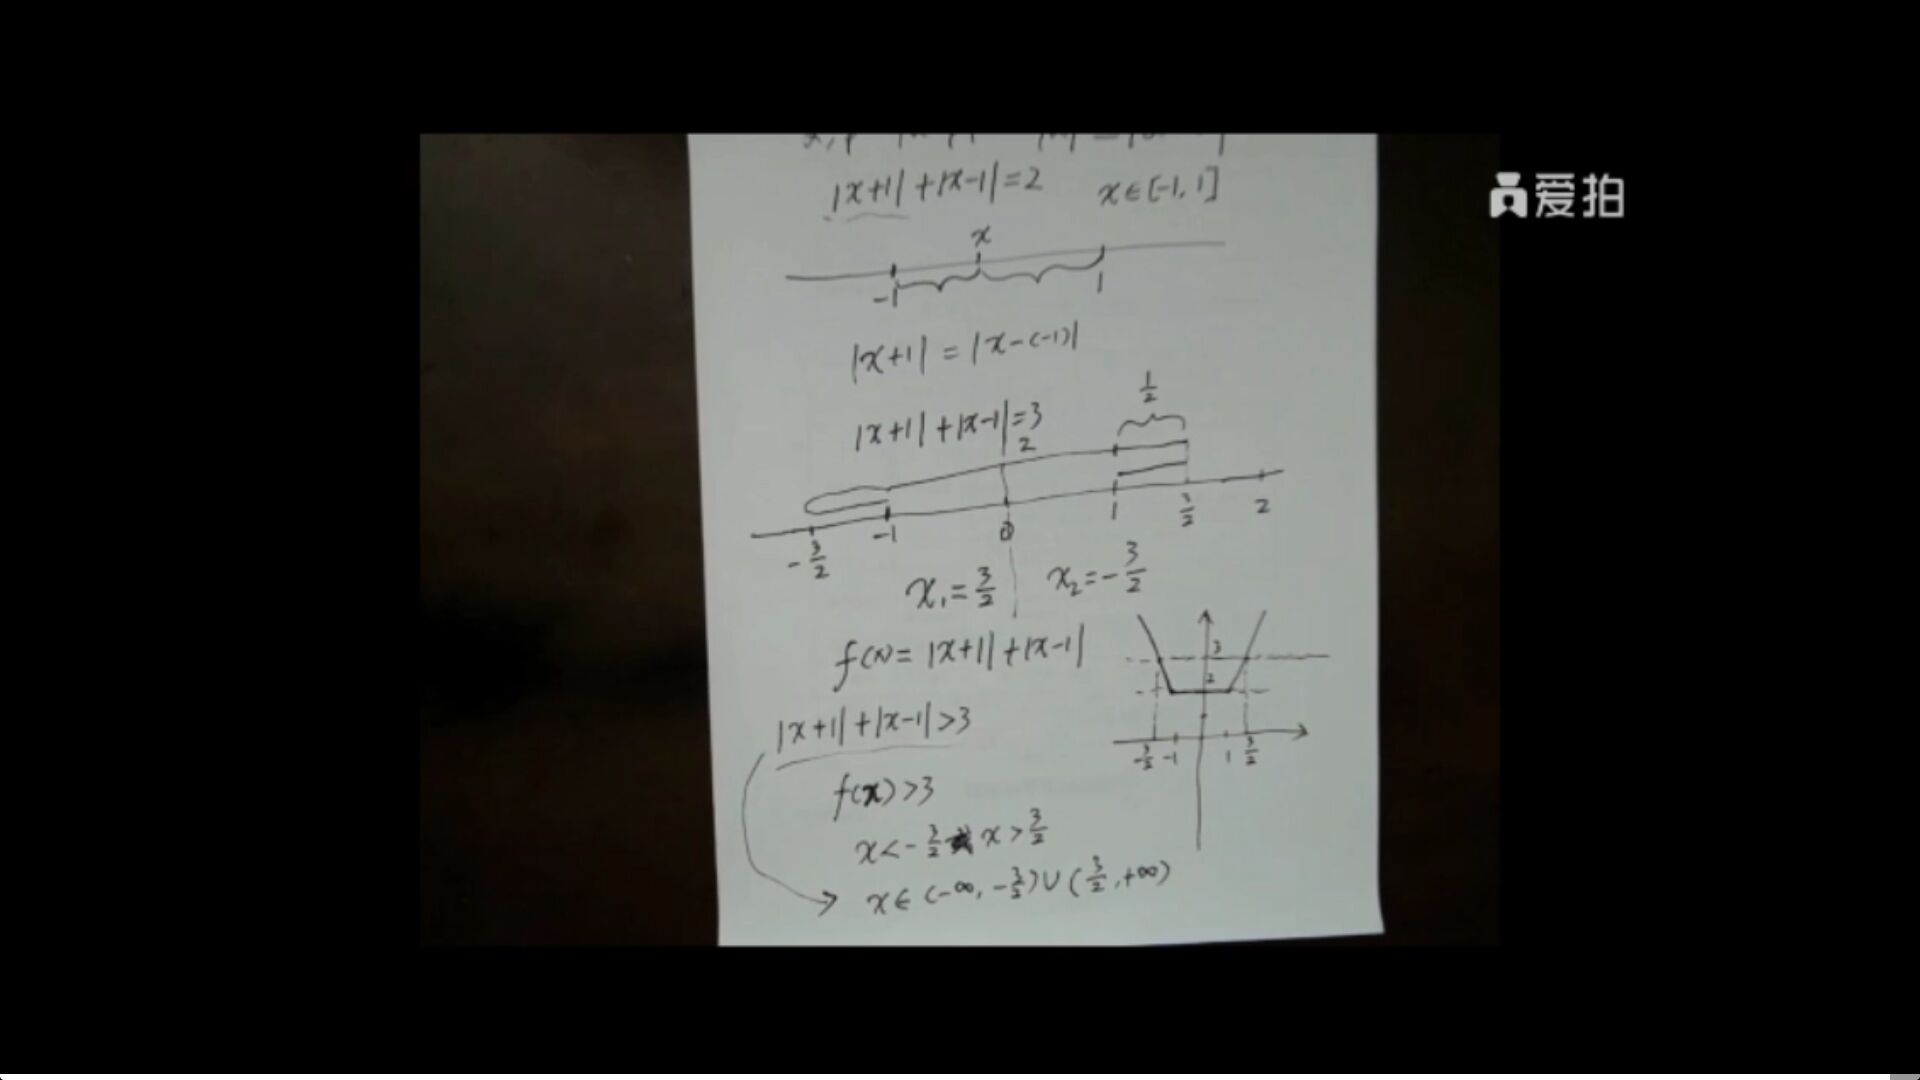 |x+1|+|x-1|=2 x∈[-1,1]
爱拍
x
-1 1
|x+1|=|x-(-1)|
1/2
|x+1|+|x-1|=3
2
-3/2 -1 0 1 3/2 2
x₁=3/2 x₂=-3/2
f(x)=|x+1|+|x-1|
3
2
-3/2 -1 1 3/2
|x+1|+|x-1|>3
f(x)>3
x<-3/2 或 x>3/2
x∈(-∞,-3/2)∪(3/2,+∞)